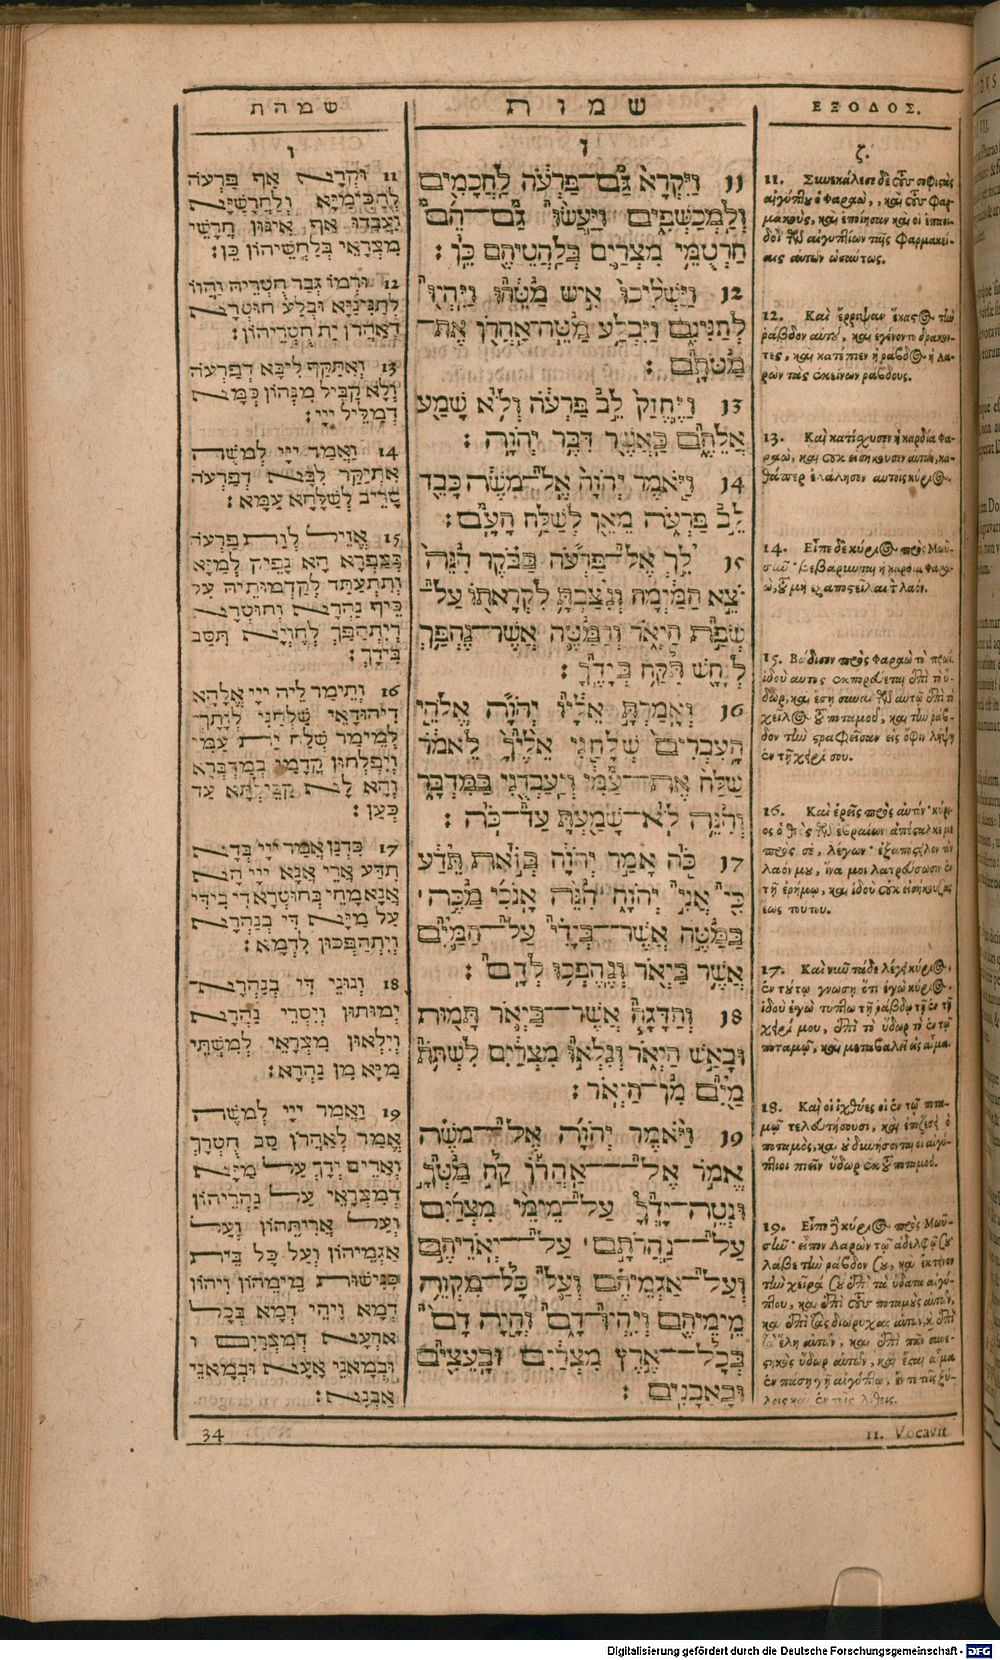 שמהת
ו
11 וּקְרָא אַף פַּרְעֹה
לְחַכִּימַיָּא וְלַחֲרָשַׁיָּא
וַעֲבַדוּ אַף אִינוּן חֲרָשֵׁי
מִצְרָאֵי בְּלַחֲשֵׁיהוֹן כֵּן׃
12 וּרְמוֹ גְּבַר חֻטְרֵיהּ וַהֲווֹ
לְתַנִּינַיָּא וּבְלַע חוּטְרָא
דְאַהֲרֹן יָת חֻטְרֵיהוֹן׃
13 וְאִתַּקַּף לִיבָּא דְפַרְעֹה
וְלָא קַבִּיל מִנְּהוֹן כְּמָא
דְמַלֵּיל יְיָי׃
14 וַאֲמַר יְיָי לְמשֶׁה
אִתְיַקַּר לִבָּא דְפַרְעֹה
סָרֵיב לְשַׁלָּחָא עַמָּא׃
15 אֱזֵיל לְוַת פַּרְעֹה
בְּצַפְרָא הָא נָפֵיק לְמַיָּא
וְתִתְעַתַּד לְקַדְמוּתֵיהּ עַל
כֵּיף נַהְרָא וְחוּטְרָא
דְיִתְהַפַּךְ לְחֻוְיָא תִּסַּב
בִּידָךְ׃
16 וְתֵימַר לֵיהּ יְיָי אֱלָהָא
דִיהוּדָאֵי שַׁלְחַנִי לְוָתָךְ
לְמֵימַר שַׁלַּח יָת עַמִּי
וְיִפְלְחוּן קֳדָמַי בְּמַדְבְּרָא
וְהָא לָא קַבֵּילְתָּא עַד
כְּעַן׃
17 כִּדְנַן אֲמַר יְיָי בְּדָא
תִדַּע אֲרֵי אֲנָא יְיָי הָא
אֲנָא מָחֵי בְּחוּטְרָא דִּי בִידִי
עַל מַיָּא דִּי בְנַהֲרָא
וְיִתְהַפְכוּן לִדְמָא׃
18 וְנוּנֵי דִּי בְנַהֲרָא
יְמוּתוּן וְיִסְרֵי נַהֲרָא
וְיִלְאוּן מִצְרָאֵי לְמִשְׁתֵּי
מַיָּא מִן נַהְרָא׃
19 וַאֲמַר יְיָי לְמשֶׁה
אֱמַר לְאַהֲרֹן סַב חֻטְרָךְ
וַאֲרֵים יְדָךְ עַל מַיָּא
דְמִצְרָאֵי עַל נַהֲרֵיהוֹן
וְעַל אֲרִיתֵּהוֹן וְעַל
אַגְמֵיהוֹן וְעַל כָּל בֵּית
כְּנִישׁוּת מֵימֵהוֹן וִיהוֹן
דְמָא וִיהֵי דְמָא בְּכָל
אַרְעָא דְמִצְרַיִם ו
וּבְמָאנֵי אָעָא וּבְמָאנֵי
אַבְנָא׃
שמות
ו
11 וַיִּקְרָא גַּם־פַּרְעֹה לַחֲכָמִים
וְלַמְכַשְּׁפִים וַיַּעֲשׂוּ גַם־הֵם
חַרְטֻמֵּי מִצְרַיִם בְּלַהֲטֵיהֶם כֵּן׃
12 וַיַּשְׁלִיכוּ אִישׁ מַטֵּהוּ וַיִּהְיוּ
לְתַנִּינִם וַיִּבְלַע מַטֵּה־אַהֲרֹן אֶת־
מַטֹּתָם׃
13 וַיֶּחֱזַק לֵב פַּרְעֹה וְלֹא שָׁמַע
אֲלֵהֶם כַּאֲשֶׁר דִּבֶּר יְהוָה׃
14 וַיֹּאמֶר יְהוָה אֶל־משֶׁה כָּבֵד
לֵב פַּרְעֹה מֵאֵן לְשַׁלַּח הָעָם׃
15 לֵךְ אֶל־פַּרְעֹה בַּבֹּקֶר הִנֵּה
יֹצֵא הַמַּיְמָה וְנִצַּבְתָּ לִקְרָאתוֹ עַל־
שְׂפַת הַיְאֹר וְהַמַּטֶּה אֲשֶׁר־נֶהְפַּךְ
לְנָחָשׁ תִּקַּח בְּיָדֶךָ׃
16 וְאָמַרְתָּ אֵלָיו יְהוָה אֱלֹהֵי
הָעִבְרִים שְׁלָחַנִי אֵלֶיךָ לֵאמֹר
שַׁלַּח אֶת־עַמִּי וְיַעַבְדֻנִי בַּמִּדְבָּר
וְהִנֵּה לֹא־שָׁמַעְתָּ עַד־כֹּה׃
17 כֹּה אָמַר יְהוָה בְּזֹאת תֵּדַע
כִּי אֲנִי יְהוָה הִנֵּה אָנֹכִי מַכֶּה
בַּמַּטֶּה אֲשֶׁר־בְּיָדִי עַל־הַמַּיִם
אֲשֶׁר בַּיְאֹר וְנֶהֶפְכוּ לְדָם׃
18 וְהַדָּגָה אֲשֶׁר־בַּיְאֹר תָּמוּת
וּבָאַשׁ הַיְאֹר וְנִלְאוּ מִצְרַיִם לִשְׁתּוֹת
מַיִם מִן־הַיְאֹר׃
19 וַיֹּאמֶר יְהוָה אֶל־משֶׁה
אֱמֹר אֶל־אַהֲרֹן קַח מַטְּךָ
וּנְטֵה־יָדְךָ עַל־מֵימֵי מִצְרַיִם
עַל־נַהֲרֹתָם עַל־יְאֹרֵיהֶם
וְעַל־אַגְמֵיהֶם וְעַל כָּל־מִקְוֵה
מֵימֵיהֶם וְיִהְיוּ־דָם וְהָיָה דָם
בְּכָל־אֶרֶץ מִצְרַיִם וּבָעֵצִים
וּבָאֲבָנִים׃
ΕΞΟΔΟΣ.
ζ.
11. Συνεκάλεσε δὲ τοὺς σοφιστὰς
αἰγύπτου ὁ Φαραὼ, καὶ τοὺς φαρ-
μακοὺς, καὶ ἐποίησαν καὶ οἱ ἐπαοι-
δοὶ τῶν αἰγυπτίων ταῖς φαρμακεί-
αις αὐτῶν ὡσαύτως.
12. Καὶ ἔρριψαν ἕκαστος τὴν
ῥάβδον αὐτοῦ, καὶ ἐγένοντο δράκον-
τες, καὶ κατέπιεν ἡ ῥάβδος ἡ Ἀα-
ρὼν τὰς ἐκείνων ῥάβδους.
13. Καὶ κατίσχυσεν ἡ καρδία Φα-
ραὼ, καὶ οὐκ εἰσήκουσεν αὐτῶν, κα-
θάπερ ἐλάλησεν αὐτοῖς κύριος.
14. Εἶπε δὲ κύριος πρὸς Μωϋ-
σῆν· βεβάρυνται ἡ καρδία Φαρα-
ώ, τοῦ μὴ ἐξαποστεῖλαι τ̀ λαόν.
15. Βάδισον πρὸς Φαραὼ τὸ πρωΐ.
ἰδοὺ αὐτὸς ἐκπορεύεται ἐπὶ τὸ ὕ-
δωρ, καὶ ἔσῃ συναντῶν αὐτῷ ἐπὶ τὸ
χεῖλος τοῦ ποταμοῦ, καὶ τὴν ῥάβ-
δον τὴν στραφεῖσαν εἰς ὄφιν λήψῃ
ἐν τῇ χειρί σου.
16. Καὶ ἐρεῖς πρὸς αὐτόν· κύρι-
ος ὁ θεὸς τῶν ἑβραίων ἀπέσταλκέ με
πρὸς σὲ, λέγων· ἐξαπόστειλον τὸν
λαόν μου, ἵνα μοι λατρεύσωσιν ἐν
τῇ ἐρήμῳ, καὶ ἰδοὺ οὐκ εἰσήκουσας
ἕως τούτου.
17. Καὶ νῦν τάδε λέγει κύριος.
ἐν τούτῳ γνώσῃ ὅτι ἐγὼ κύριος.
ἰδοὺ ἐγὼ τύπτω τῇ ῥάβδῳ τῇ ἐν τῇ
χειρί μου, ἐπὶ τὸ ὕδωρ τὸ ἐν τῷ
ποταμῷ, καὶ μεταβαλεῖ εἰς αἷμα.
18. Καὶ οἱ ἰχθύες οἱ ἐν τῷ ποτα-
μῷ τελευτήσουσι, καὶ ἐποζέσει ὁ
ποταμὸς, καὶ οὐ δυνήσονται οἱ αἰγύ-
πτιοι πιεῖν ὕδωρ ἐκ τοῦ ποταμοῦ.
19. Εἶπε δὲ κύριος πρὸς Μωϋ-
σῆν· εἶπον Ἀαρὼν τῷ ἀδελφῷ σου
λάβε τὴν ῥάβδον σου, καὶ ἔκτεινον
τὴν χεῖρά σου ἐπὶ τὰ ὕδατα αἰγύ-
πτου, καὶ ἐπὶ τοὺς ποταμοὺς αὐτῶν,
καὶ ἐπὶ τὰς διώρυχας αὐτῶν, κ̀ ἐπὶ
τὰ ἕλη αὐτῶν, καὶ ἐπὶ πᾶν συνε-
στηκὸς ὕδωρ αὐτῶν, καὶ ἔσται αἷμα
ἐν πάσῃ γῇ αἰγύπτῳ, ἔν τε τοῖς ξύ-
λοις καὶ ἐν τοῖς λίθοις.
34
11. Vocavit
Digitalisierung gefördert durch die Deutsche Forschungsgemeinschaft - DFG